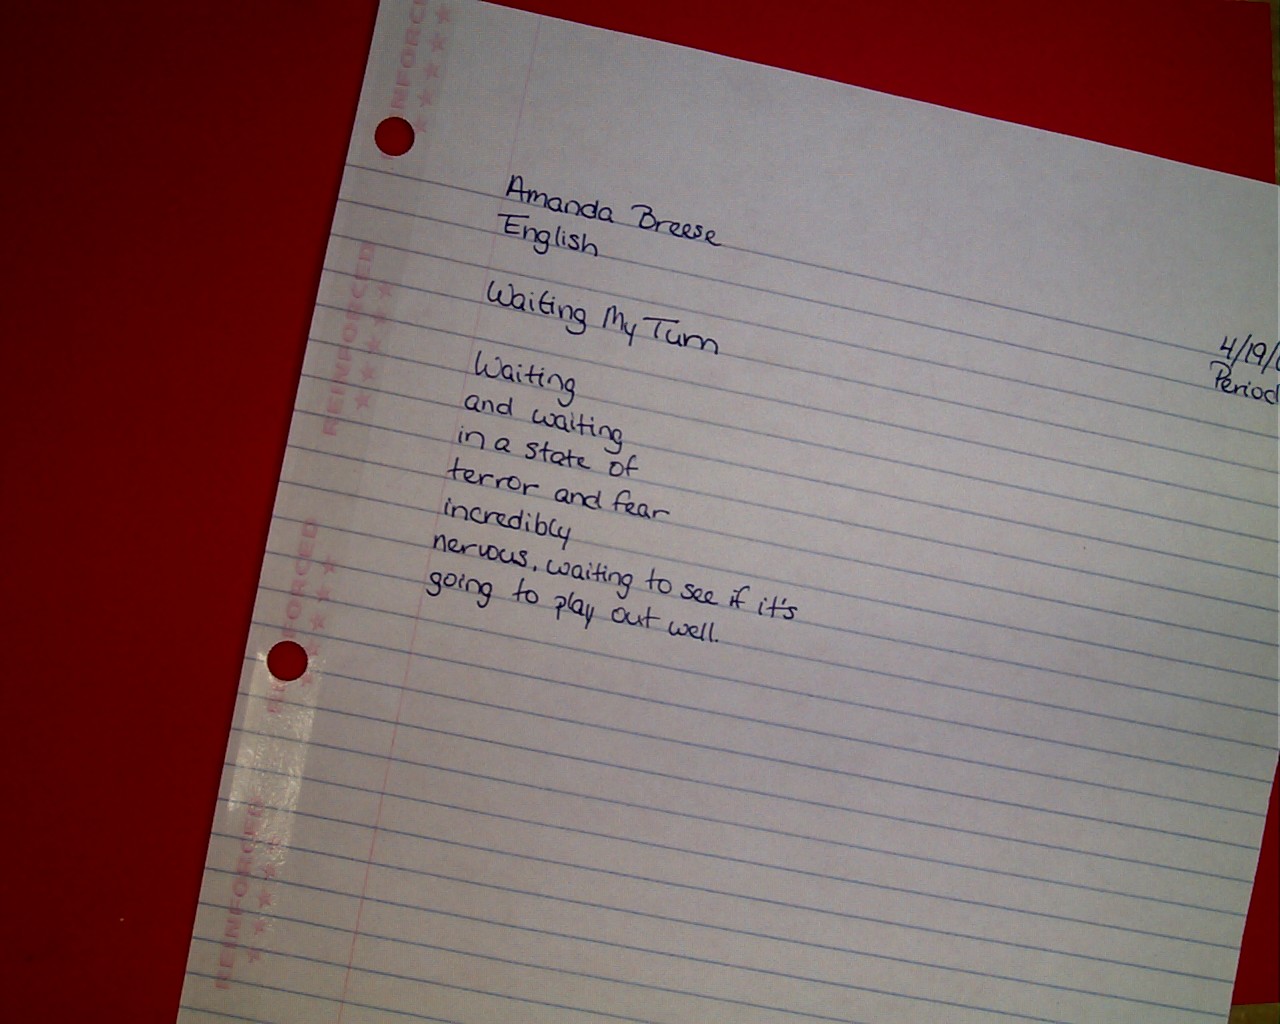 Amanda Breese
English
4/19/
Period
Waiting My Turn
Waiting
and waiting
in a state of
terror and fear
incredibly
nervous, waiting to see if it's
going to play out well.
REINFORCED
REINFORCED
REINFORCED
REINFORCED